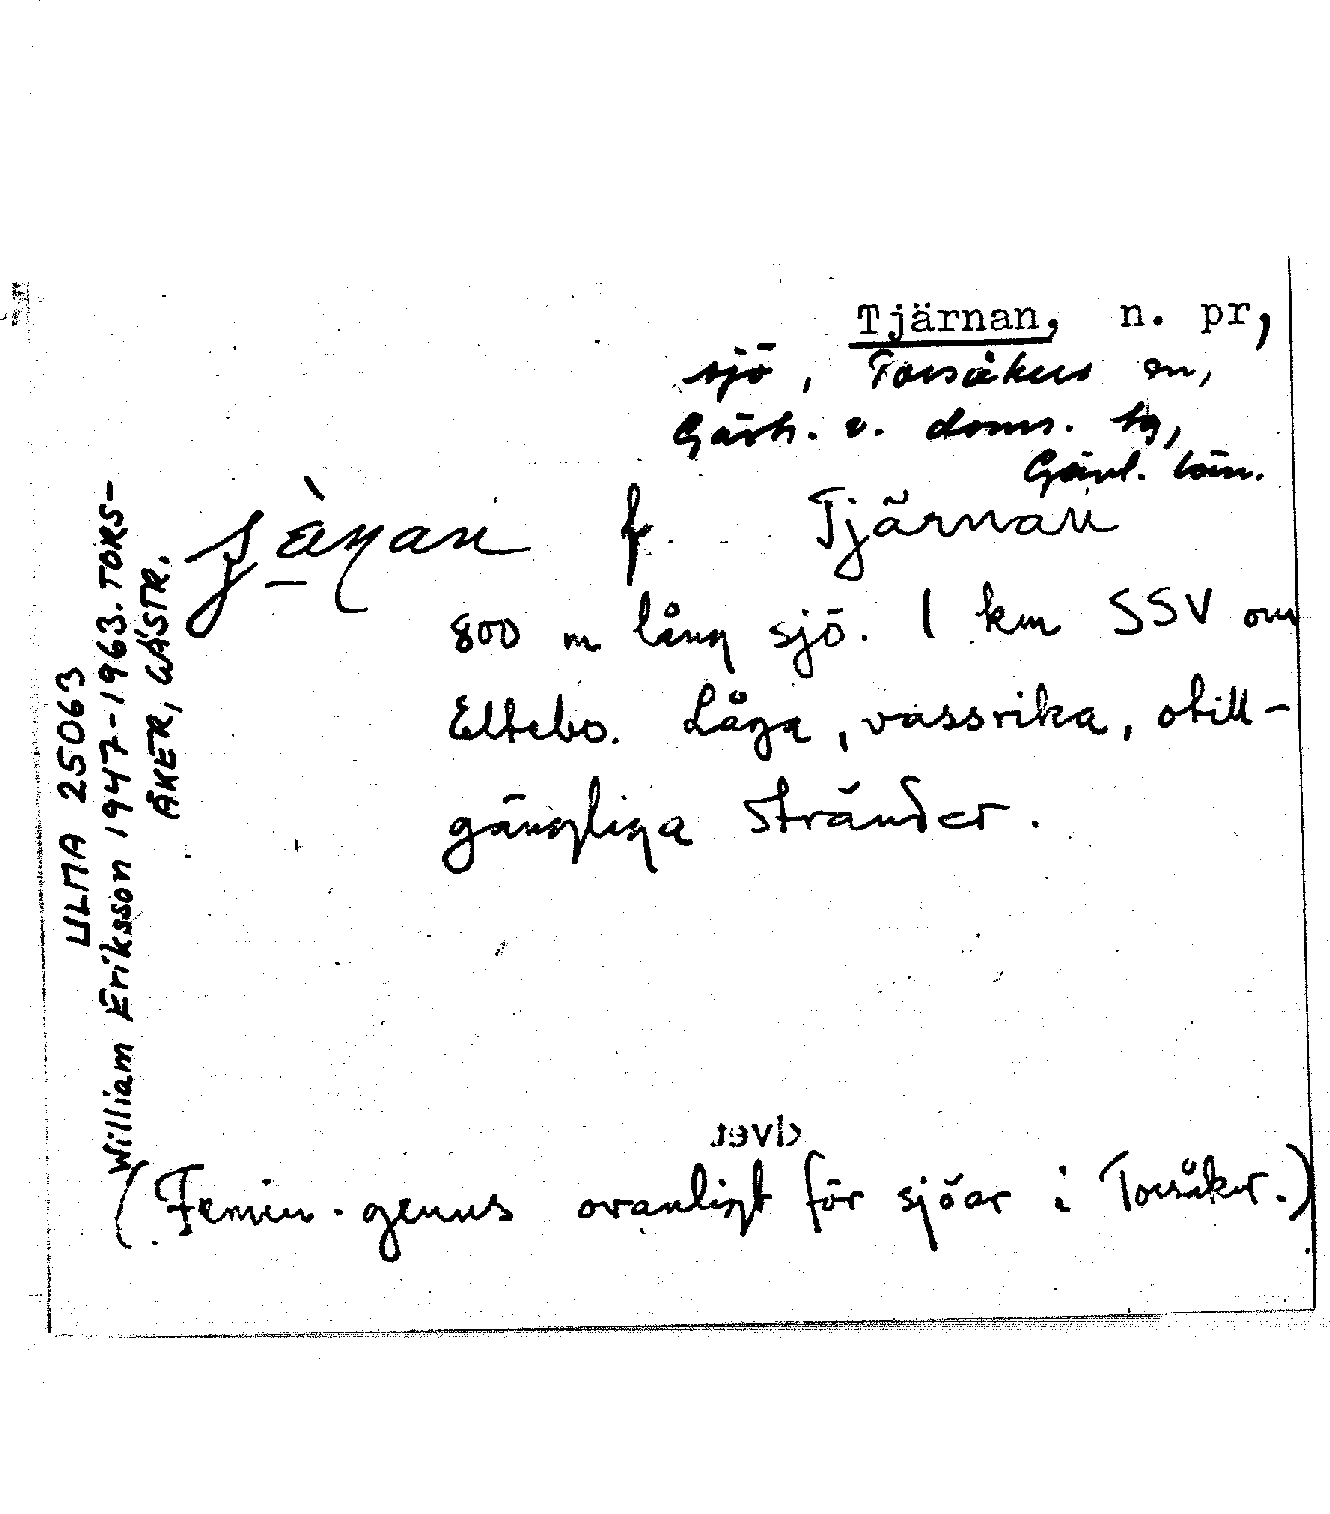 Tjärnan, n. pr,
sjö, Torsåkers sn,
Gästr. v. doms. tg,
Gävl. län.
f Tjärnan
800 m lång sjö. 1 km SSV om
Eltebo. Låga, vassrika, otill-
gängliga stränder.
(Femin. genus ovanligt för sjöar i Torsåker.)
ULMA 25063
William Eriksson 1947-1963. TORS-
ÅKER, GÄSTR.